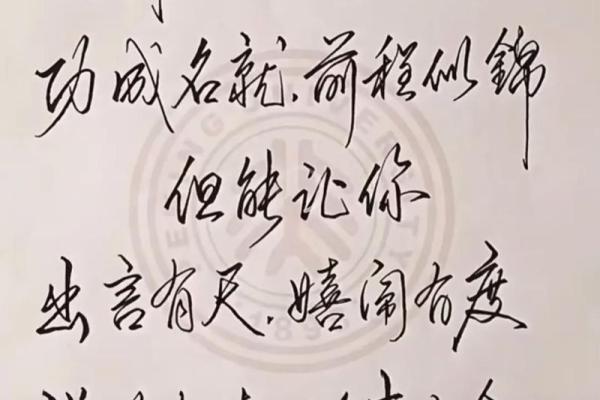 功成名就,前程似錦
但能让你
出言有尺,嬉闹有度